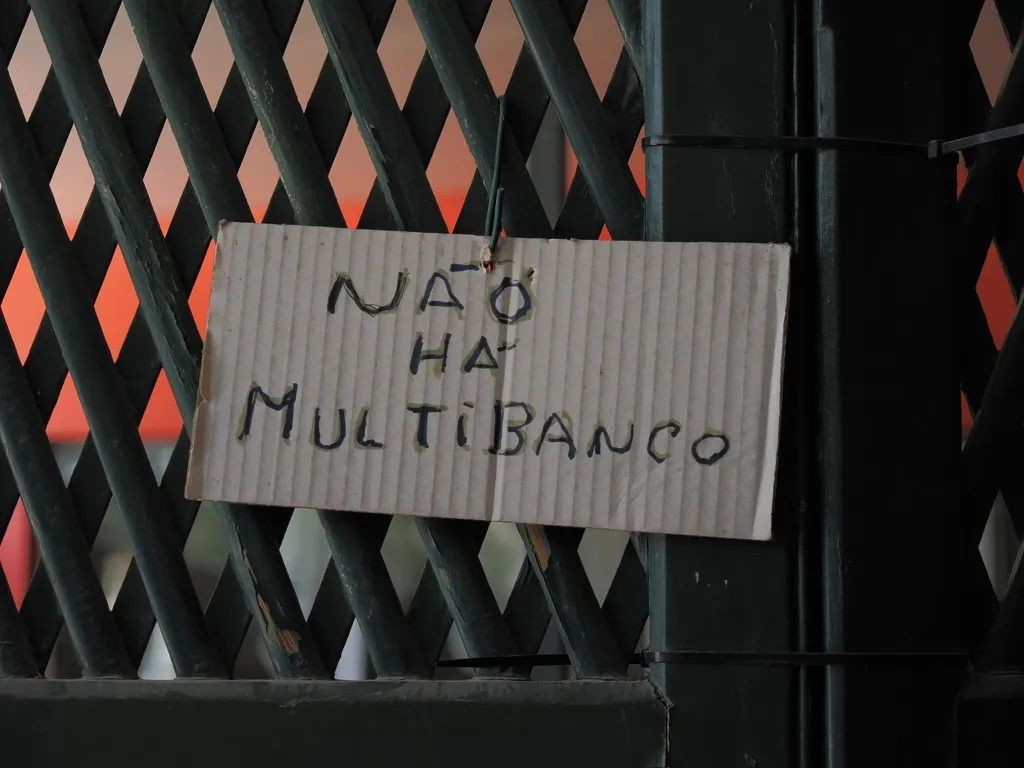 NÃO
HÁ
MULTiBANCO